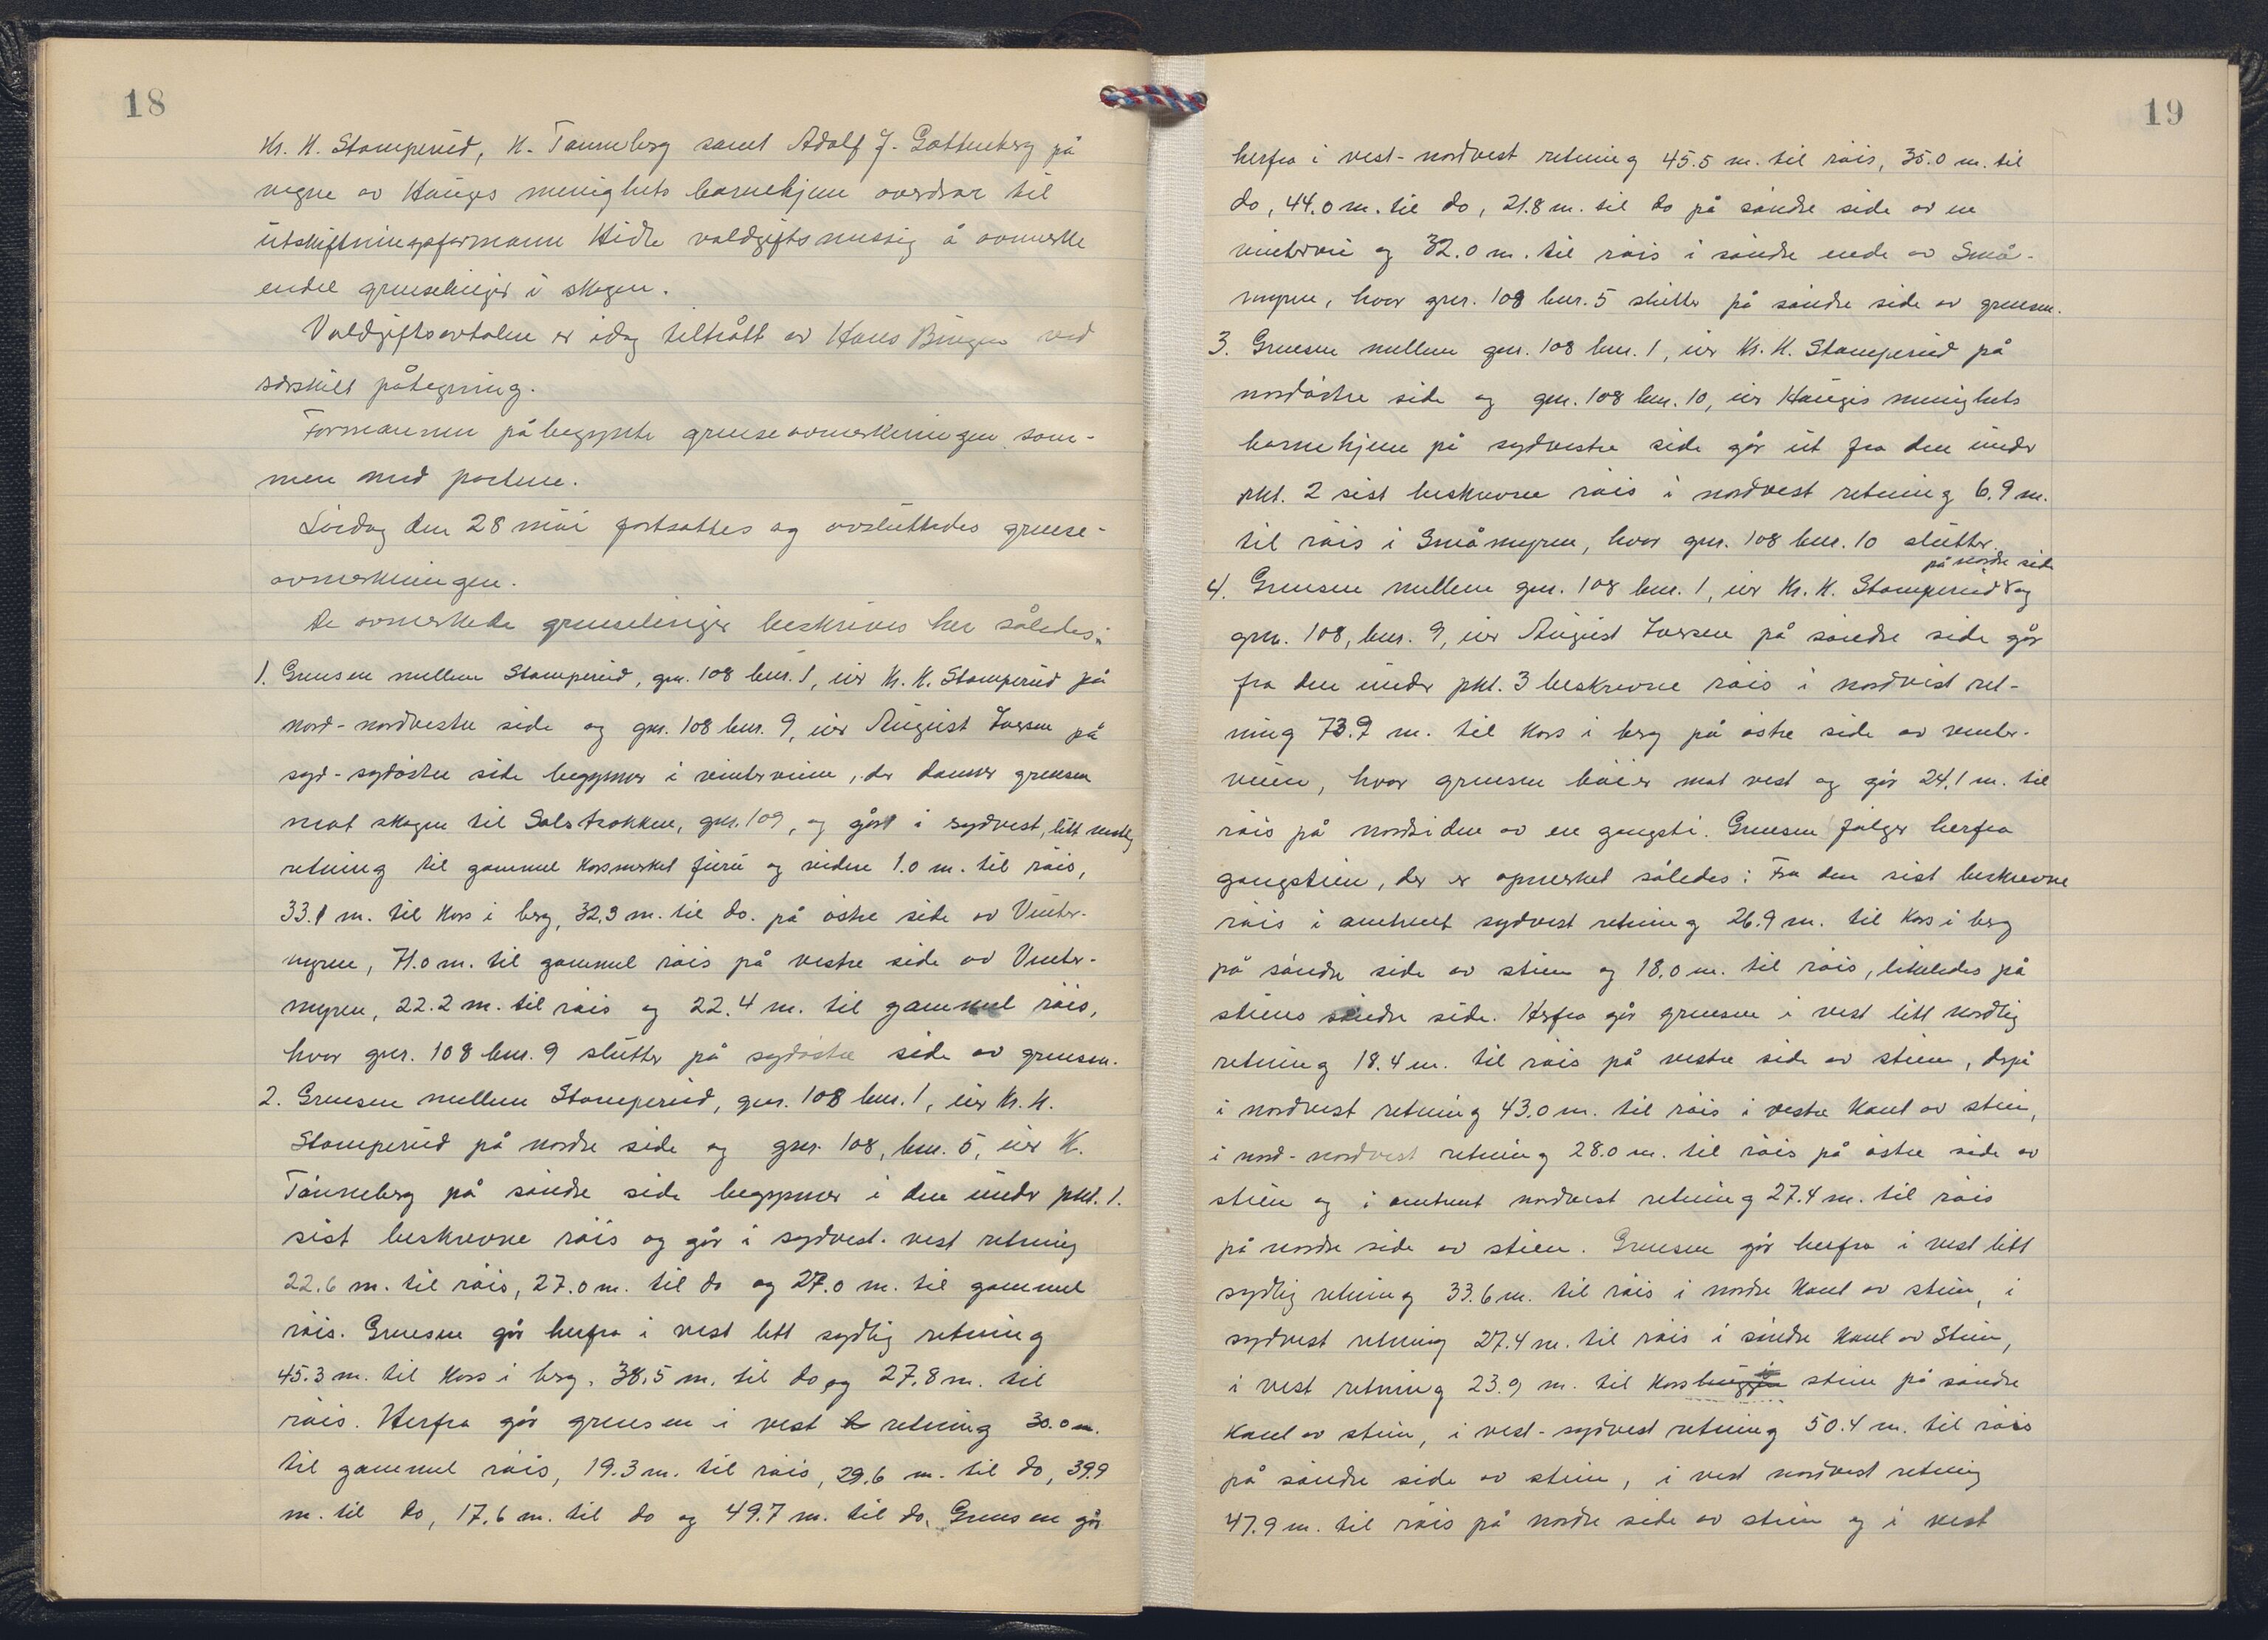 18
Kr. K. Stamperud, K. Tanneberg samt Adolf J. Gottenberg på
vegne av Hauges menighets barnehjem overdrar til
utskiftningsformann Hidle voldgiftsmessig å avmerke
endel grenselinjer i skogen.
Voldgiftsavtalen er idag tiltrått av Hans Bingen ved
særskilt påtegning.
Formannen påbegynte grenseavmerkningen sam-
men med partene.
Lördag den 28 mai fortsattes og avsluttedes grense-
avmerkningen.
De avmerkede grenselinjer beskrives her således:
1. Grensen mellem Stamperud, gnr. 108 bnr. 1, eier Kr. K. Stamperud på
nord-nordvestre side og gnr. 108 bnr. 9, eier August Iversen på
syd-sydöstre side begynner i vinterveien, der danner grensen
mot skogen til Solstrokken, gnr. 109, og går i sydvest, litt vestlig
retning til gammel korsmerket furu og videre 1.0 m. til röis,
33.1 m. til kors i berg, 32.3 m. til do. på östre side av Vinter-
myren, 71.0 m. til gammel röis på vestre side av Vinter-
myren, 22.2 m. til röis og 22.4 m. til gammel röis,
hvor gnr. 108 bnr. 9 slutter på sydöstre side av grensen.
2. Grensen mellem Stamperud, gnr. 108 bnr. 1, eier Kr. K.
Stamperud på nordre side og gnr. 108, bnr. 5, eier K.
Tanneberg på söndre side begynner i den under pkt. 1.
sist beskrevne röis og går i sydvest-vest retning
22.6 m. til röis, 27.0 m. til do og 27.0 m. til gammel
röis. Grensen går herfra i vest litt sydlig retning
45.3 m. til kors i berg, 38.5 m. til do og 27.8 m. til
röis. Herfra går grensen i vest retning 30.0 m.
til gammel röis, 19.3 m. til röis, 29.6 m. til do, 39.9
m. til do, 17.6 m. til do og 49.7 m. til do. Grensen går
19
herfra i vest-nordvest retning 45.5 m. til röis, 35.0 m. til
do, 44.0 m. til do, 21.8 m. til do på söndre side av en
vintervei og 32.0 m. til röis i söndre ende av Små-
myren, hvor gnr. 108 bnr. 5 slutter på söndre side av grensen.
3. Grensen mellem gnr. 108 bnr. 1, eier Kr. K. Stamperud på
nordöstre side og gnr. 108 bnr. 10, eier Hauges menighets
barnehjem på sydvestre side går ut fra den under
pkt. 2 sist beskrevne röis i nordvest retning 6.9 m.
til röis i Småmyren, hvor gnr. 108 bnr. 10 slutter.
på nordre side
4. Grensen mellem gnr. 108 bnr. 1, eier Kr. K. Stamperud og
gnr. 108, bnr. 9, eier August Iversen på söndre side går
fra den under pkt. 3 beskrevne röis i nordvest ret-
ning 73.9 m. til kors i berg på östre side av vinter-
veien, hvor grensen böier mot vest og går 24.1 m. til
röis på nordsiden av en gangsti. Grensen fölger herfra
gangstien, der er opmerket således: Fra den sist beskrevne
röis i omtrent sydvest retning 26.9 m. til kors i berg
på söndre side av stien og 18.0 m. til röis, likeledes på
stiens söndre side. Herfra går grensen i vest litt nordlig
retning 18.4 m. til röis på vestre side av stien, derpå
i nordvest retning 43.0 m. til röis i vestre kant av stien,
i nord-nordvest retning 28.0 m. til röis på östre side av
stien og i omtrent nordvest retning 27.4 m. til röis
på nordre side av stien. Grensen går herfra i vest litt
sydlig retning 33.6 m. til röis i nordre kant av stien, i
sydvest retning 27.4 m. til röis i söndre kant av stien,
i vest retning 23.9 m. til kors i sten på söndre
kant av stien, i vest-sydvest retning 50.4 m. til röis
på söndre side av stien, i vest nordvest retning
47.9 m. til röis på nordre side av stien og i vest